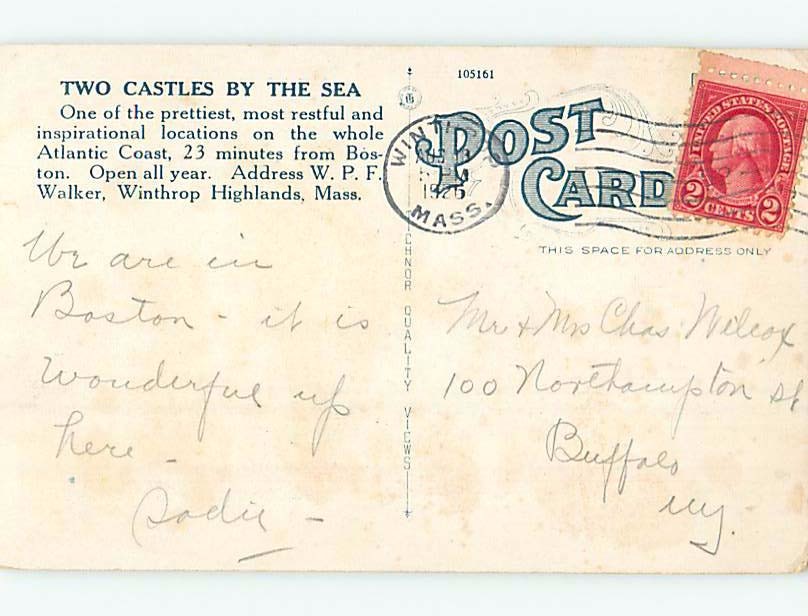 TWO CASTLES BY THE SEA
One of the prettiest, most restful and
inspirational locations on the whole
Atlantic Coast, 23 minutes from Bos-
ton. Open all year. Address W. P. F.
Walker, Winthrop Highlands, Mass.
We are in
Boston - it is
wonderful up
here -
Sadie -
105161
POST
CARD
WINT
1926
MASS.
UNITED STATES POSTAGE
2 CENTS 2
THIS SPACE FOR ADDRESS ONLY
ICHNOR QUALITY VIEWS
Mr + Mrs Chas Wilcox
100 Northampton St
Buffalo
NY.